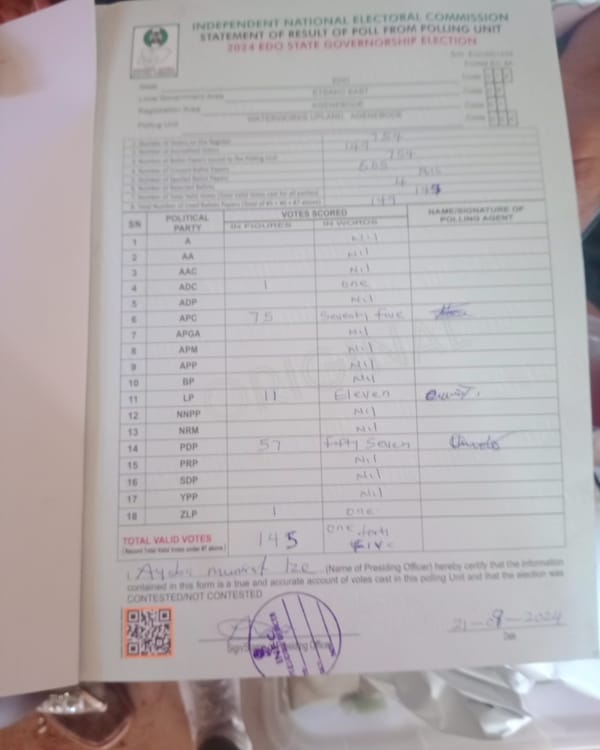 INDEPENDENT NATIONAL ELECTORAL COMMISSION
STATEMENT OF RESULT OF POLL FROM POLLING UNIT
2024 EDO STATE GOVERNORSHIP ELECTION
State EDO Code
Local Government Area ETSAKO EAST Code
Registration Area AGENEBODE Code
Polling Unit WATERWORKS UPLAND, AGENEBODE Code
1. Number of Voters on the Register 754
2. Number of Accredited Voters 149
3. Number of Ballot Papers Issued to the Polling Unit 754
4. Number of Unused Ballot Papers 605
5. Number of Spoiled Ballot Papers
6. Number of Rejected Ballots 4
7. Number of Total Valid Votes (Total valid votes cast for all parties)
8. Total Number of Used Ballot Papers (Total of #5 + #6 + #7 above) 149
S/N POLITICAL PARTY VOTES SCORED NAME/SIGNATURE OF POLLING AGENT
IN FIGURES IN WORDS
1 A Nil
2 AA Nil
3 AAC Nil
4 ADC 1 one
5 ADP Nil
6 APC 75 Seventy five
7 APGA Nil
8 APM Nil
9 APP Nil
10 BP Nil
11 LP 11 Eleven
12 NNPP Nil
13 NRM Nil
14 PDP 57 fifty Seven
15 PRP Nil
16 SDP Nil
17 YPP Nil
18 ZLP 1 one
TOTAL VALID VOTES 145 one
(Record Total Valid Votes under #7 above) five
ORIGINAL
I, (Name of Presiding Officer) hereby certify that the information
contained in this form is a true and accurate account of votes cast in this polling Unit and that the election was
CONTESTED/NOT CONTESTED
21-09-2024
Date
INEC